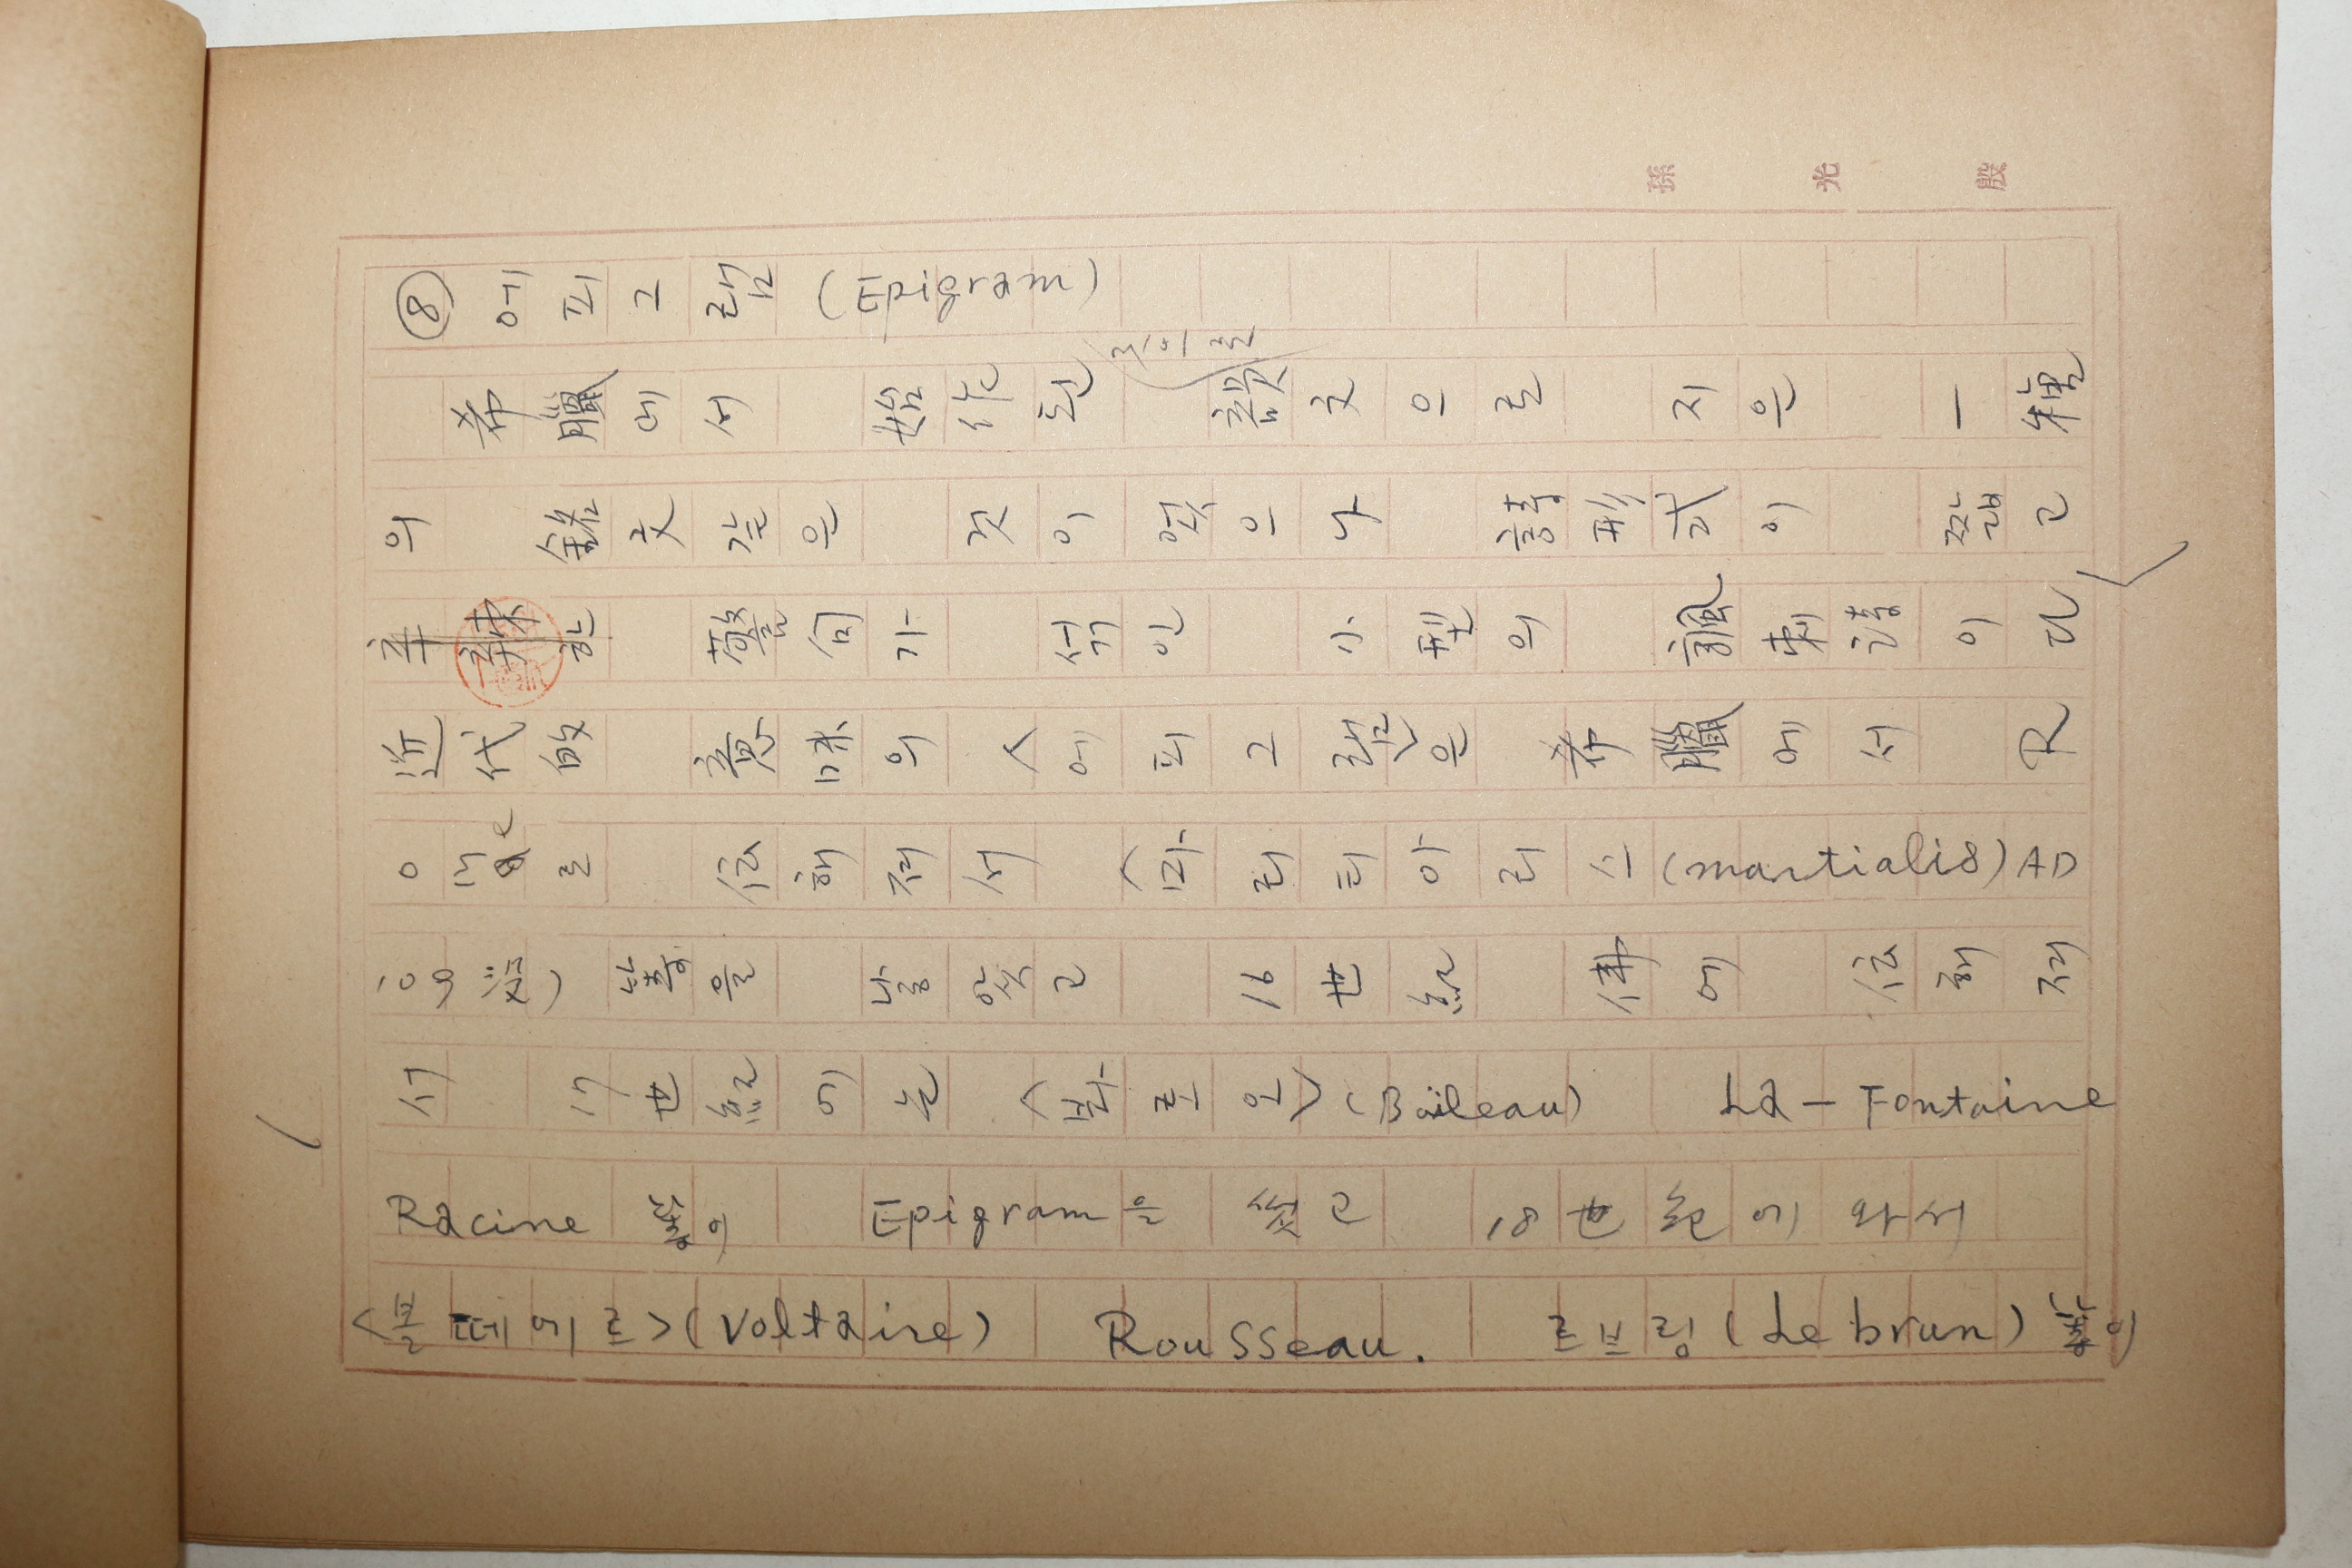 孫光殷
⑧ 에피그램 (Epigram)
希臘에서 始作된 韻文으로 지은 一種
의 銘文 같은 것이 었으나 詩形式이 짧고
辛辣한 警句가 섞인 小型의 諷刺詩이다
近代的 意味의 <에피그램>은 希臘에서 R
로 伝해져서 <마리티아리스 (martialis) AD
等을 낳았고 16世紀 佛에 伝해져
서 17世紀에는 <봐로오> (Boileau) La-Fontaine
Racine 等이 Epigram을 썼고 18世紀에 와서
<볼떼에르> (Voltaire) Rousseau. 르브렁 (Lebrun) 等이